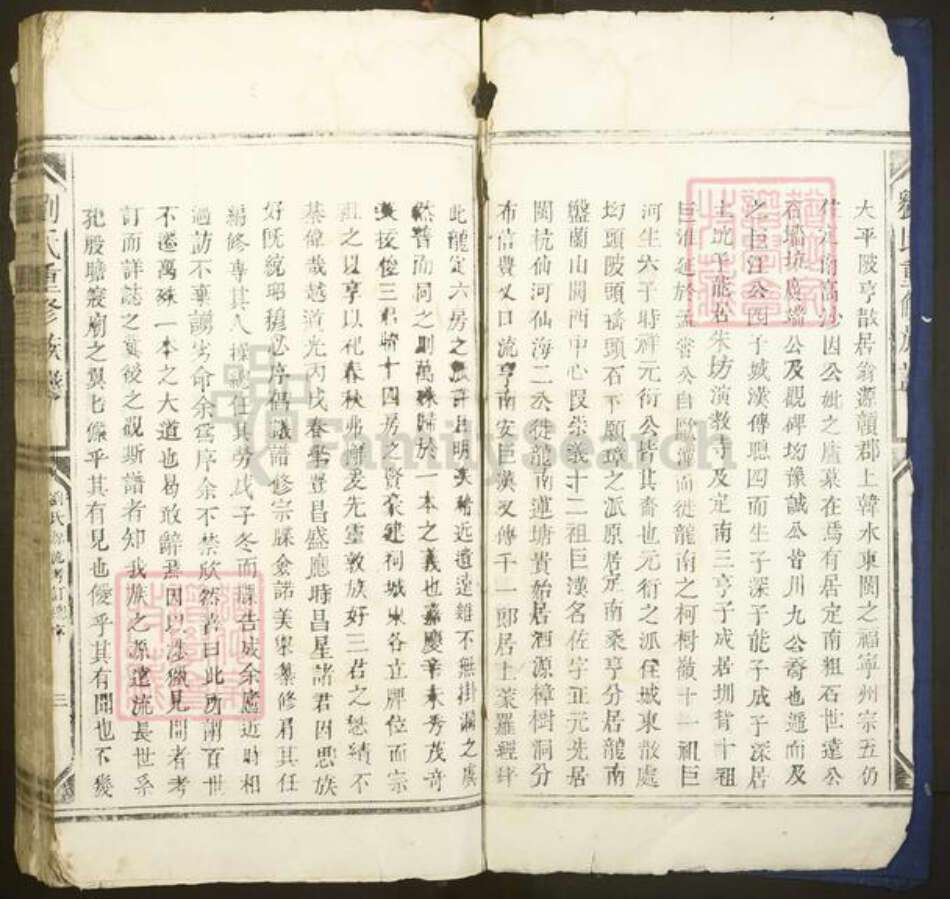 大平陂亨散居翁源韻郡上韓水東關之福寧州宗五仍
住定南高沙因公妣之廬墓在焉有居定南粗石世遠公
石墻坑廣墻公及觀碑均豫誠公皆川九公裔也遞而及
之巨江公四子城漢傳聰四而生子深子能子成子深居
土坑子能居朱坊演教寺及定南三亨子成居圳背十祖
巨淮延於孟嘗公自歐灌而徙龍南之柯樹嶺十一祖巨
河生六子時祥元衍公皆其裔也元衍之派在城東散處
均頭陂頭墻頭石下願璋之派原居定南桑亨分居龍南
盤蘭山關西中心叚崇義十二祖巨漢名佐字正元先居
閩杭仙河仙海二公徙龍南蓮塘貴始居酒源樟樹洞分
布信豐义口流亨南安巨漢又傳千一郎居上蒙羅經坪
此龍定六房之 近遺遠雖不無掛漏之虞
然普而同之則萬殊歸於一本之義也嘉慶辛未秀茂奇
拔俊三君將十四房之賢豪建祠城東各立牌位而宗
祖之以享以祀春秋弗替妥先靈敦族好三君之懋績不
綦偉哉越道光丙戌春學貴昌盛應時昌星諸君因思族
好旣統昭穆必序倡議譜修宗牒僉諾美舉纂修肩其任
編修專其人 任其勞戊子冬而牒告成余廬近時相
過訪不棄謭劣命余爲序余不禁欣然許曰此所謂百世
不遷萬殊一本之大道也曷敢辭焉因以涉獵見聞者考
訂而詳誌之冀後之覩斯譜者知我族之源遠流長世系
犯股瞻寢廟之翼七僾乎其有見也僾乎其有聞也不幾
劉氏重修族譜
劉氏 源流考訂總序
三
劉氏重修族譜